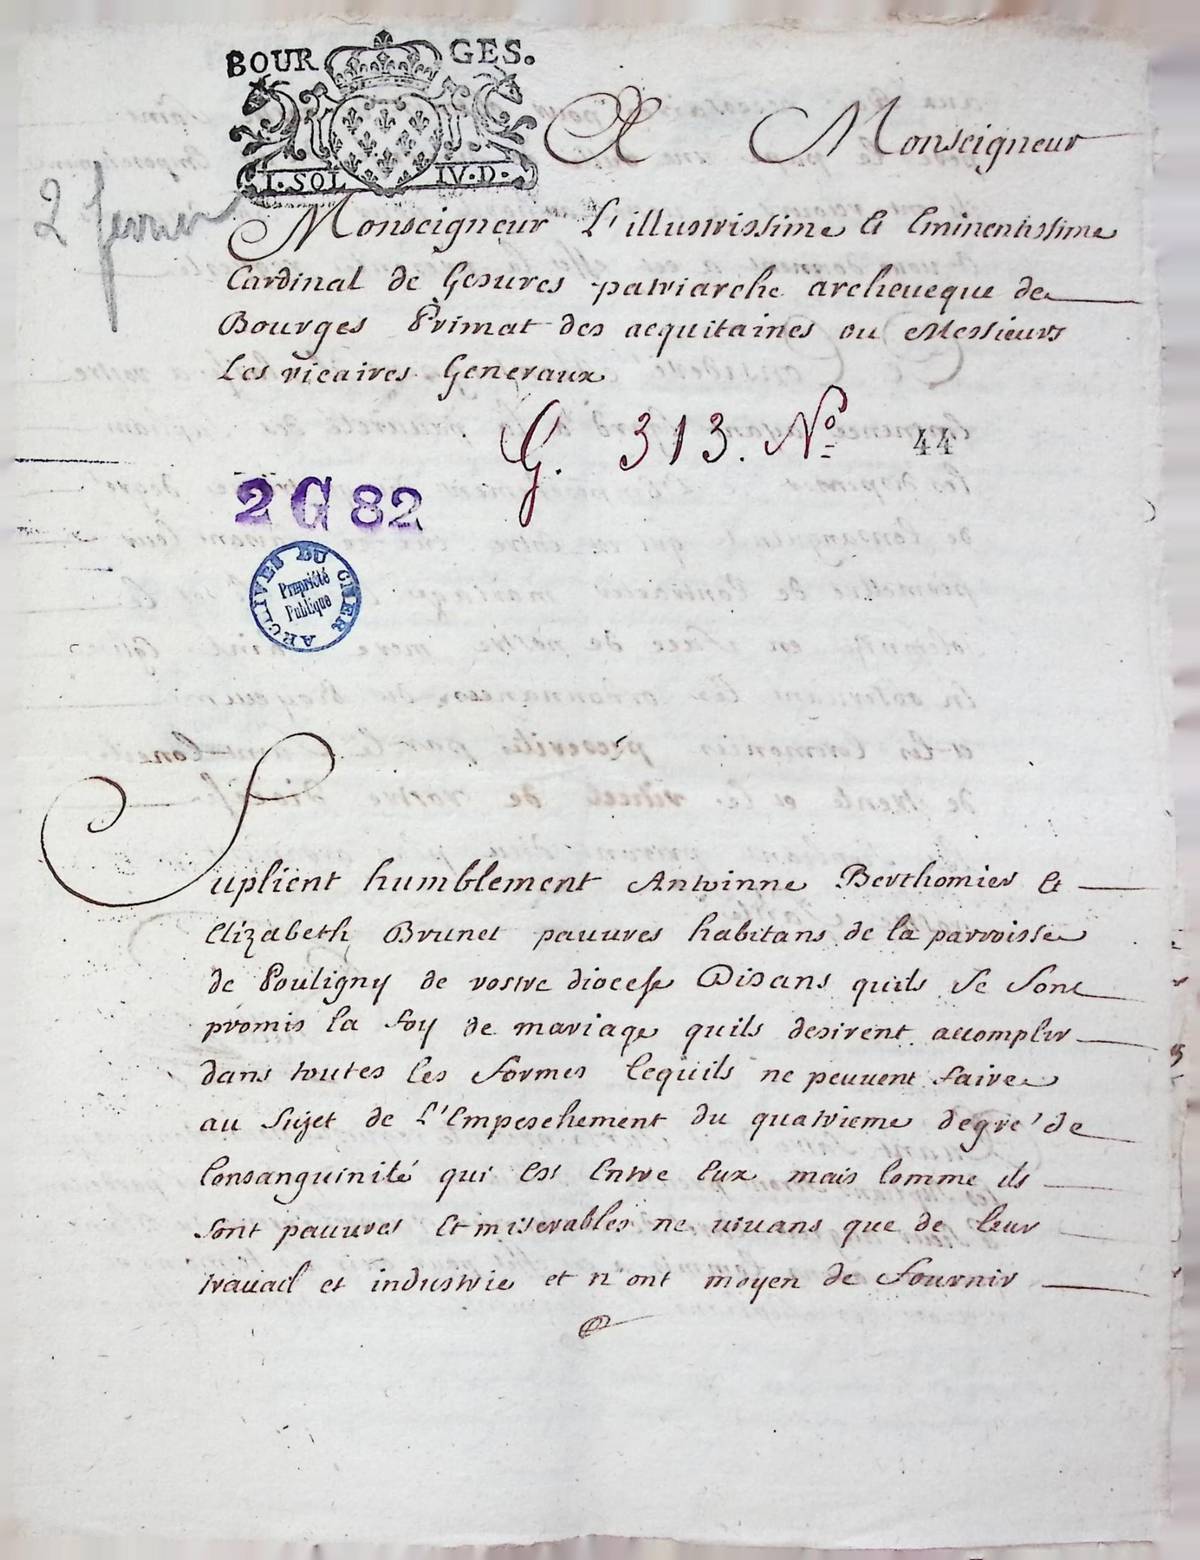 BOURGES.
I. SOL IV. D.
A Monseigneur
2 fevrier
Monseigneur L'illustrissime Et Eminentissime
Cardinal de Gesures patriarche archeueque de
Bourges Primat des acquitaines ou Messieurs
Les vicaires Generaux
G. 313. No 44
2 G 82
ARCHIVES DU CHER
Propriété
Publique
Suplient humblement Antoinne Berthomier Et
Elizabeth Brunet pauures habitans de la parroisse
de Pouligny de vostre diocese Disans quils se sont
promis la foy de mariage quils desirent accomplir
dans toutes les formes lequils ne peuuent faire
au sujet de L'Empeschement du quatrieme degré de
Consanguinité qui Est Entre Eux mais Comme ils
sont pauures Et miserables ne uiuans que de leur
trauail et industrie et n'ont moyen de fournir